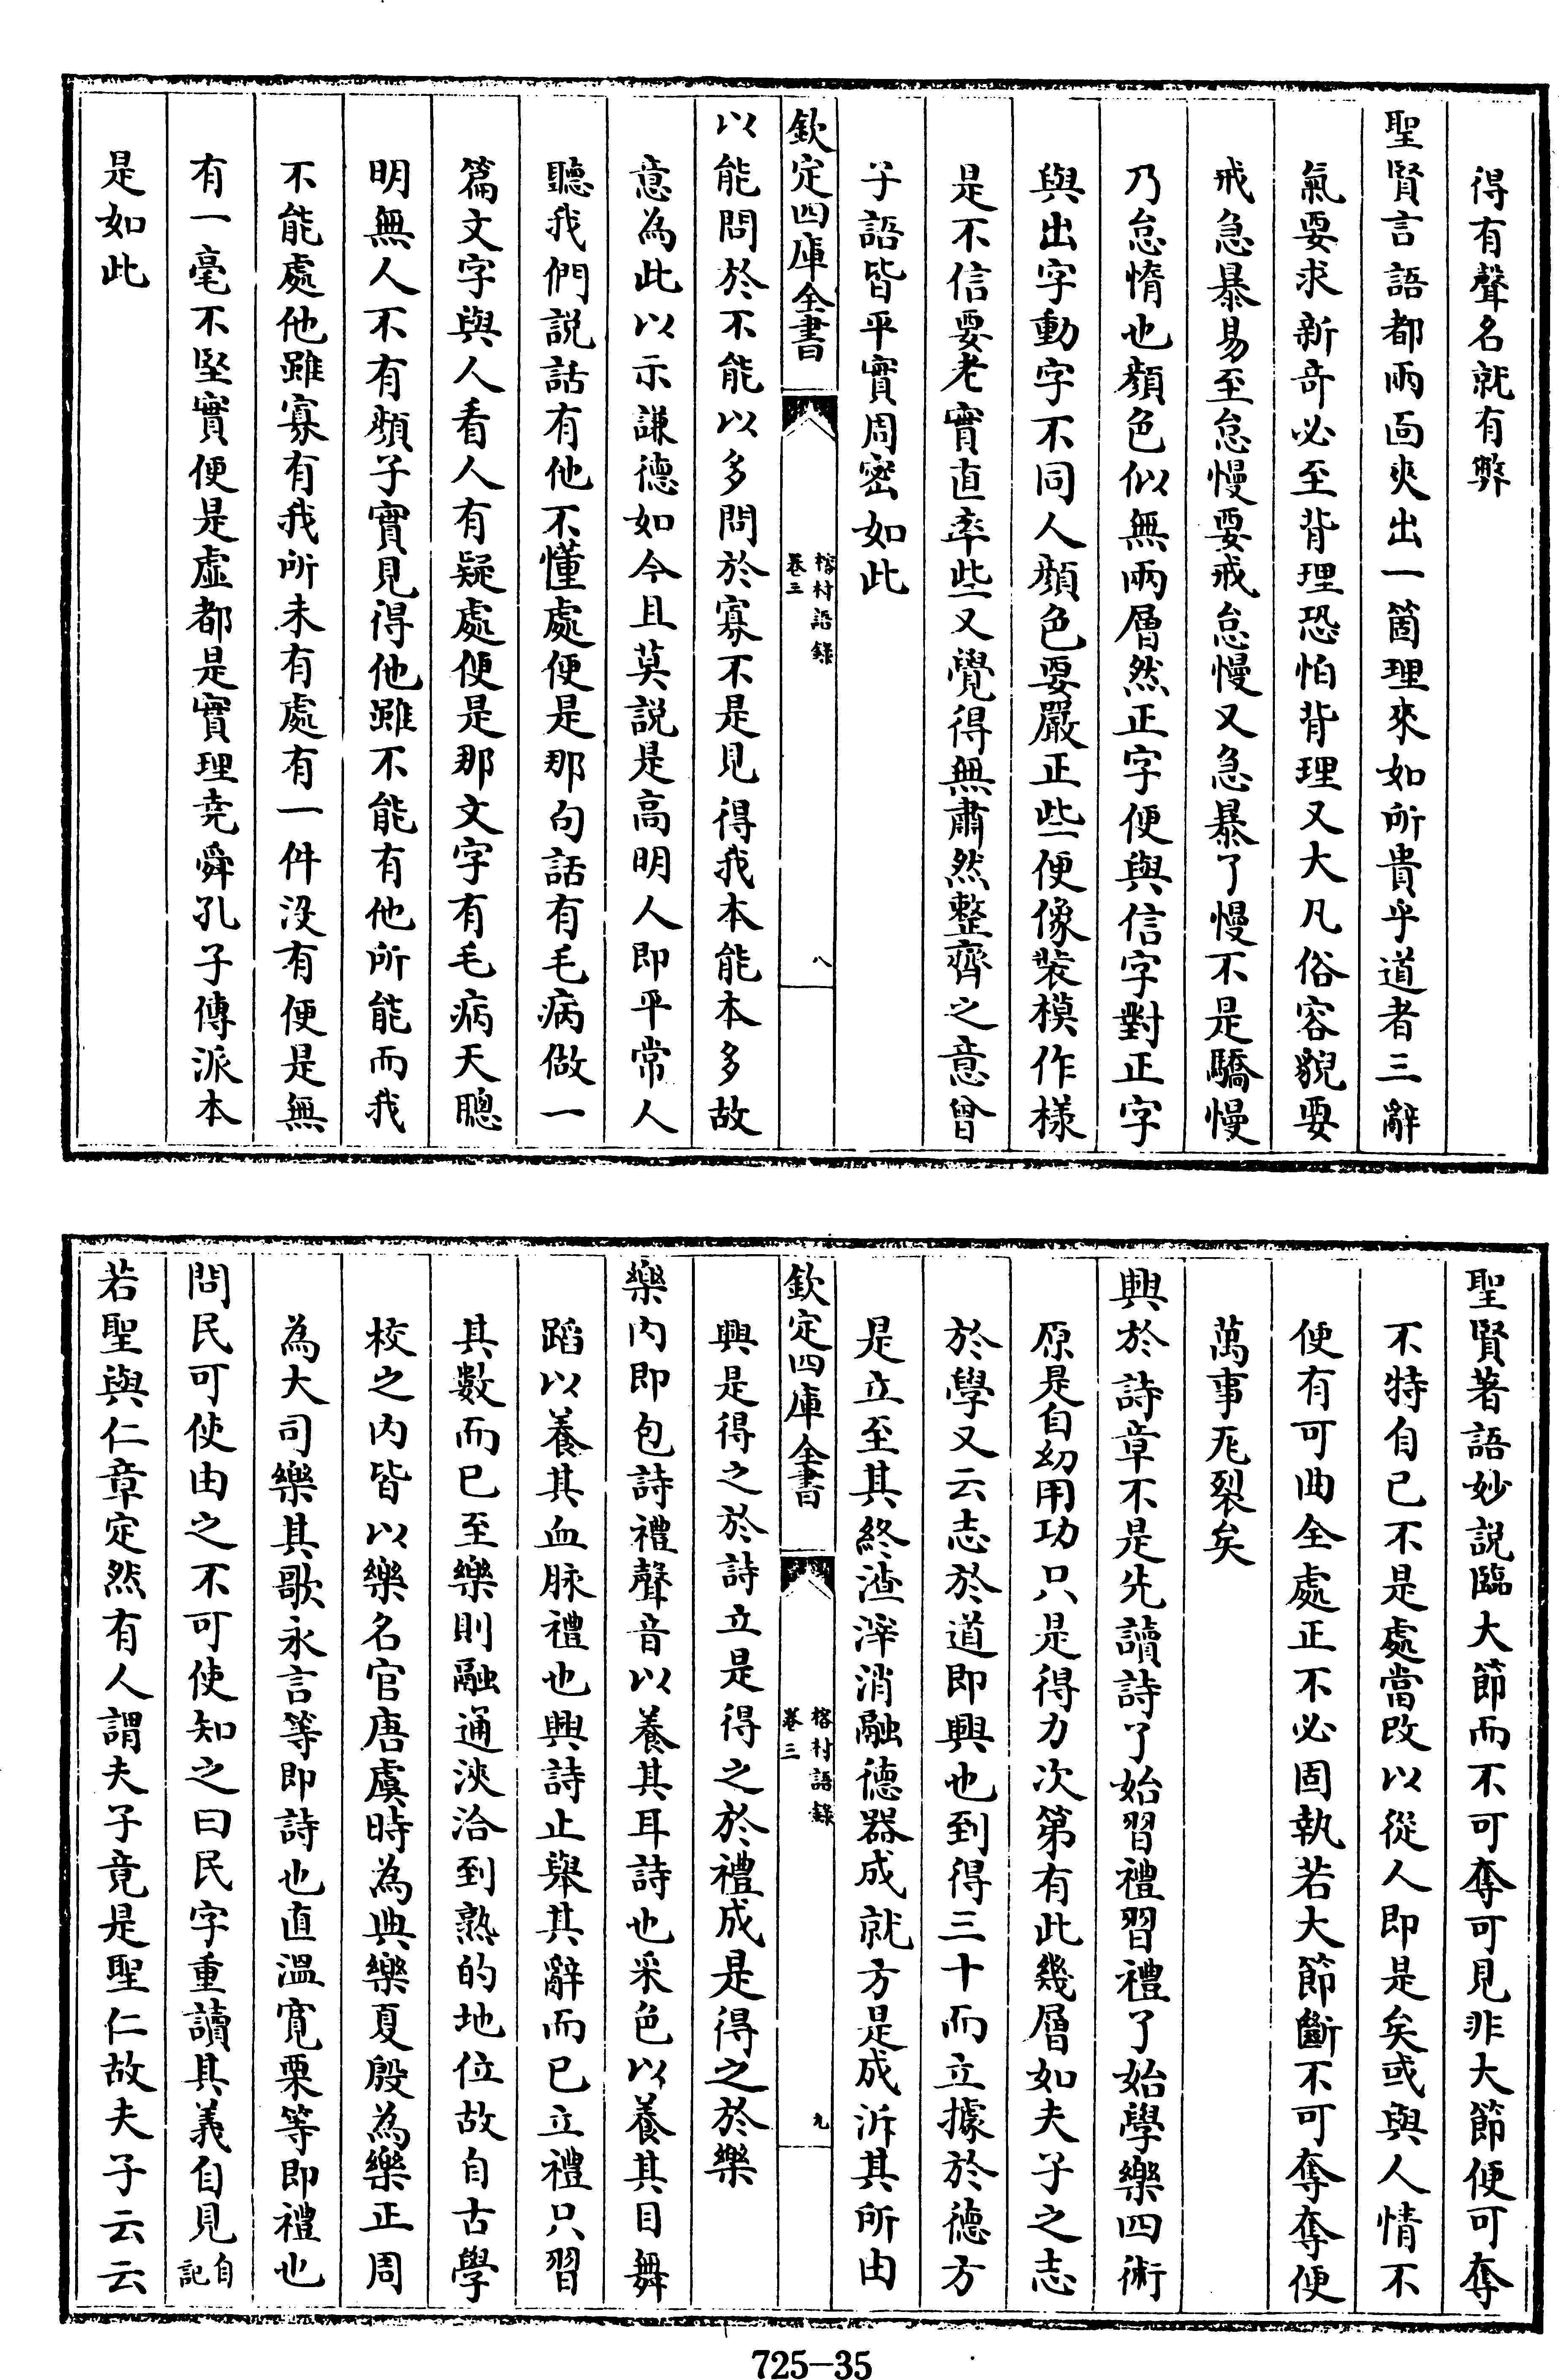 得有聲名就有弊
聖賢言語都兩面夾出一箇理來如所貴乎道者三辭
氣要求新奇必至背理恐怕背理又大凡俗容貌要
戒急暴易至怠慢要戒怠慢又急暴了慢不是驕慢
乃怠惰也顔色似無兩層然正字便與信字對正字
與出字動字不同人顔色要嚴正些便像裝模作樣
是不信要老實直率些又覺得無肅然整齊之意曾
子語皆平實周密如此
欽定四庫全書
榕村語錄
卷三
八
以能問於不能以多問於寡不是見得我本能本多故
意為此以示謙德如今且莫説是高明人即平常人
聽我們説話有他不懂處便是那句話有毛病做一
篇文字與人看人有疑處便是那文字有毛病天聰
明無人不有顔子實見得他雖不能有他所能而我
不能處他雖寡有我所未有處有一件沒有便是無
有一毫不堅實便是虛都是實理堯舜孔子傳派本
是如此
聖賢著語妙説臨大節而不可奪可見非大節便可奪
不特自已不是處當改以從人即是矣或與人情不
便有可曲全處正不必固執若大節斷不可奪奪便
萬事瓦裂矣
興於詩章不是先讀詩了始習禮習禮了始學樂四術
原是自幼用功只是得力次第有此幾層如夫子之志
於學又云志於道即興也到得三十而立據於德方
是立至其終渣滓消融德器成就方是成泝其所由
欽定四庫全書
榕村語錄
卷三
九
興是得之於詩立是得之於禮成是得之於樂
樂内即包詩禮聲音以養其耳詩也采色以養其目舞
蹈以養其血脉禮也興詩止舉其辭而已立禮只習
其數而已至樂則融通浹洽到熟的地位故自古學
校之内皆以樂名官唐虞時為典樂夏殷為樂正周
為大司樂其歌永言等即詩也直溫寛栗等即禮也
問民可使由之不可使知之曰民字重讀其義自見自記
若聖與仁章定然有人謂夫子竟是聖仁故夫子云云
725-35